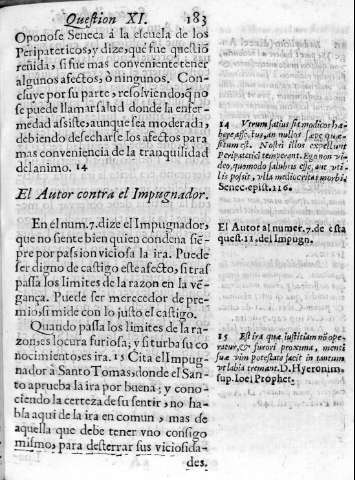 Question XI. 183
Oponose Seneca à la escuela de los
Peripateticos, y dize, que fue questiō
reñida, si fue mas conveniente tener
algunos afectos, ò ningunos. Con-
cluye por su parte, resolviendo, q̃ no
se puede llamar salud donde la enfer-
medad assiste, aunque sea moderada,
debiendo desecharse los afectos para
mas conveniencia de la tranquilidad
del animo. 14
El Autor contra el Impugnador.
En el num. 7. dize el Impugnador,
que no siente bien quien condena siē-
pre por passion viciosa la ira. Puede
ser digno de castigo este afecto, si tras
passa los limites de la razon en la vē-
gança. Puede ser merecedor de pre-
mio si mide con lo justo el castigo.
Quando passa los limites de la ra-
zon, es locura furiosa; y si turba su co
nocimiento, es ira. 15 Cita el Impug-
nador à Santo Tomas, donde el San-
to aprueba la ira por buena; y cono-
ciendo la certeza de su sentir, no ha-
bla aqui de la ira en comun, mas de
aquella que debe tener vno consigo
mismo, para desterrar sus viciosida-
des.
14 Vtrum satius sit modicos ha-
bere affectus, an nullos sæpe quæ-
situm est. Nostri illos expellunt
Peripatetici temperant. Ego non vi-
do, quomodo salubris esse, aut vti-
lis possit, vlla mediocritas morbi.
Senec. epist. 116.
El Autor al numer. 7. de esta
quest. 11. del Impugn.
15 Est ira quæ iustitiam nō ope-
ratur, & furori proxima, menti
suæ vim potestate facit in tantum
vt labia tremant. D. Hyeronim.
sup. Ioel Prophet.